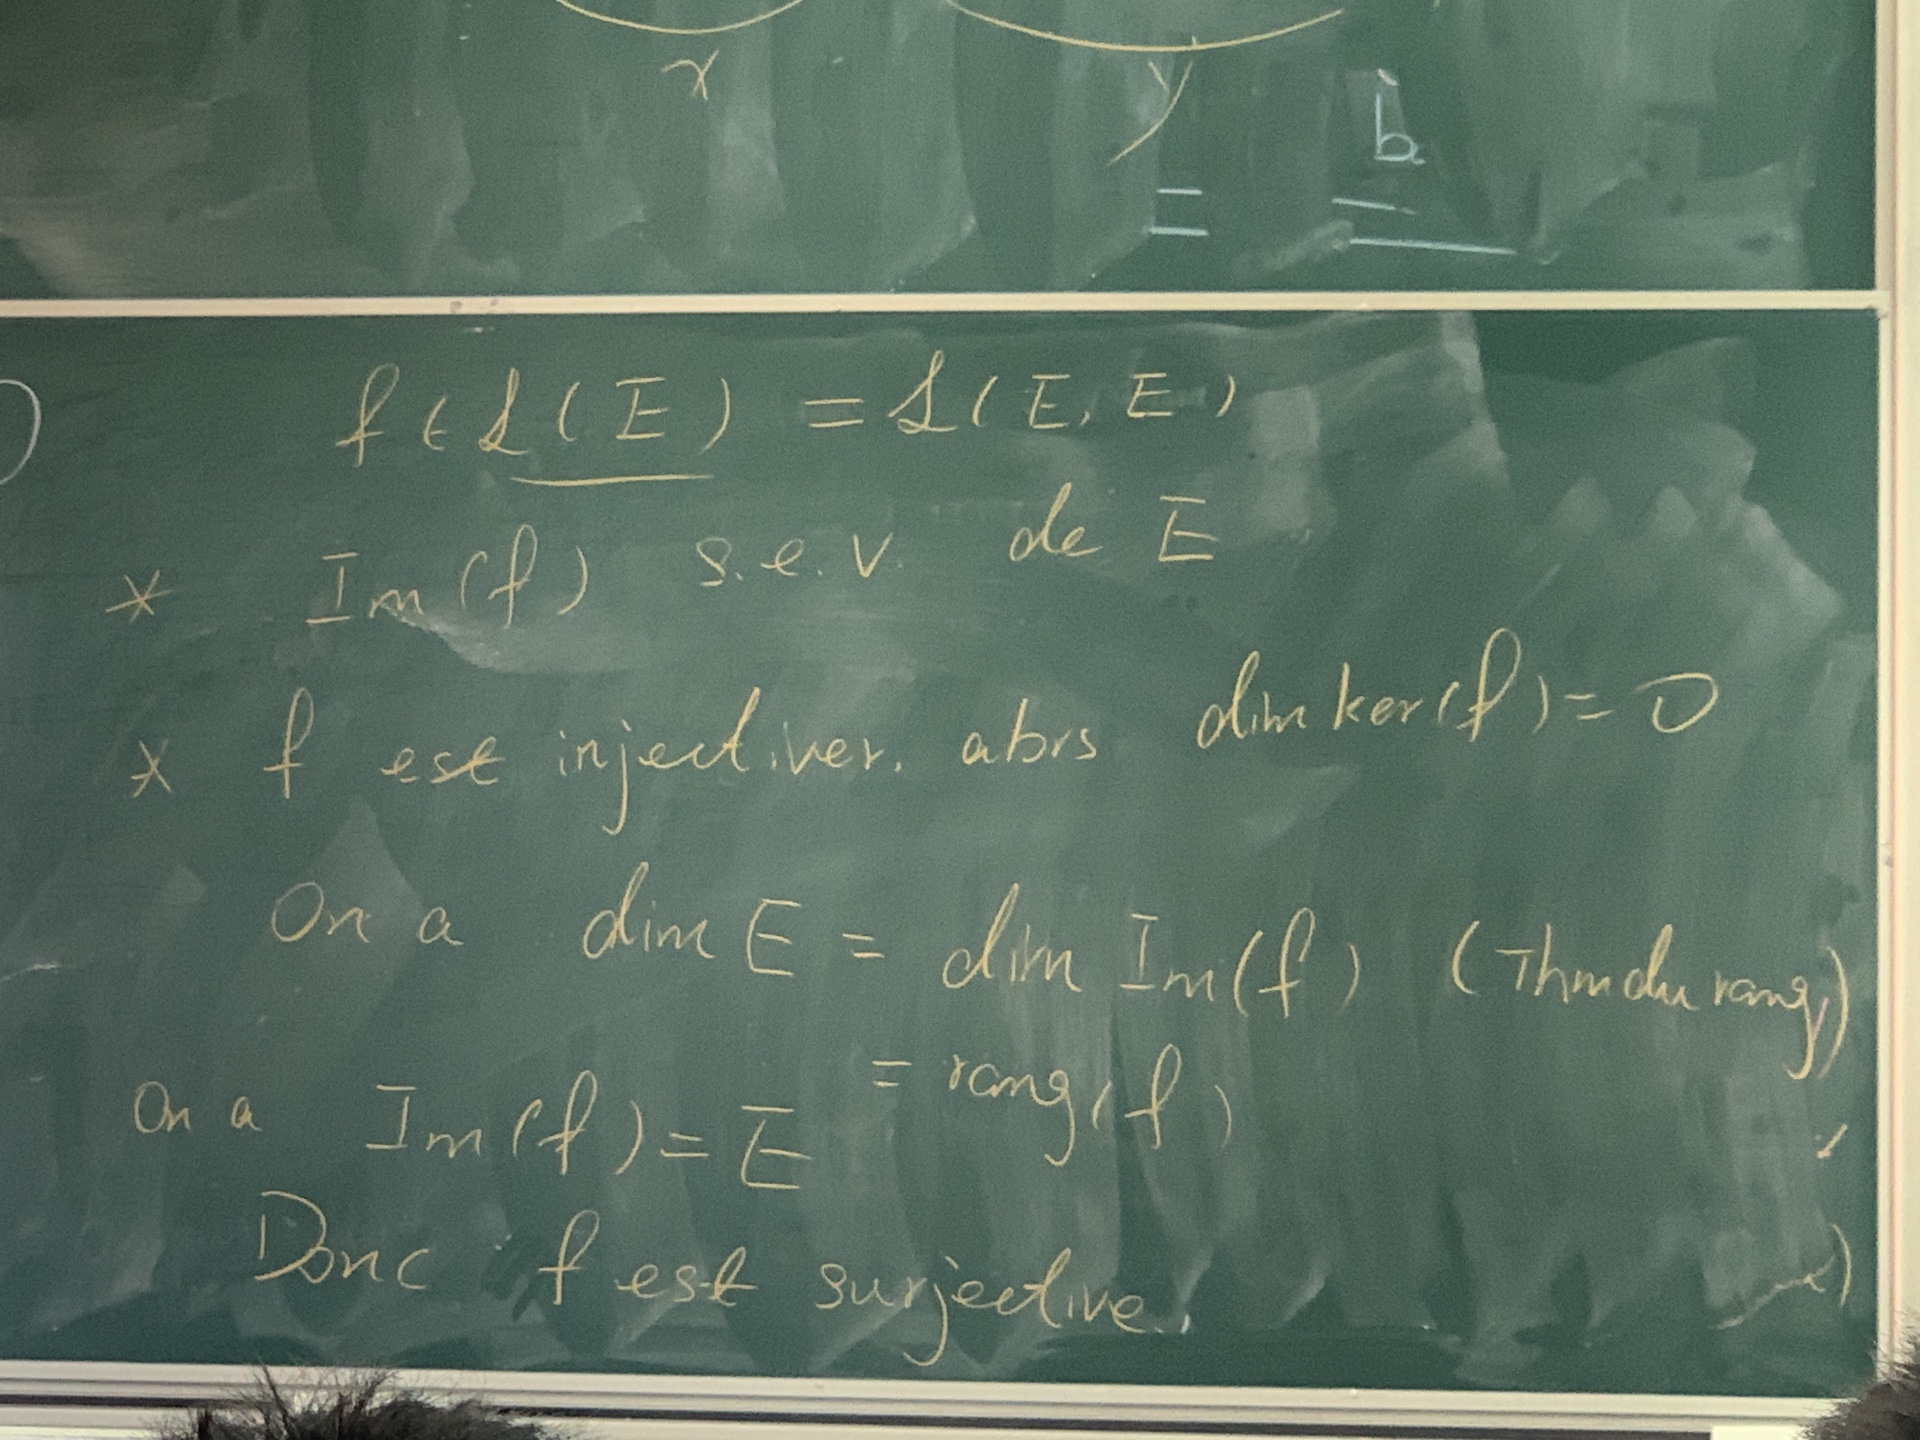 x y
b
=
f ∈ ℒ(E) = ℒ(E, E)
* Im(f) s.e.v. de E
* f est injectiver. alors dim ker(f) = 0
On a dim E = dim Im(f) (Thm du rang)
= rang(f)
On a Im(f) = E
Donc f est surjective.